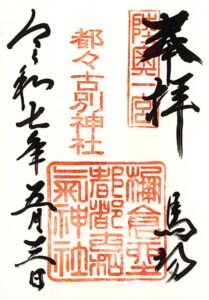 奉拝
陸奥一宮
馬場
都々古別神社
棚倉坐
都都古和
氣神社
令和七年五月日